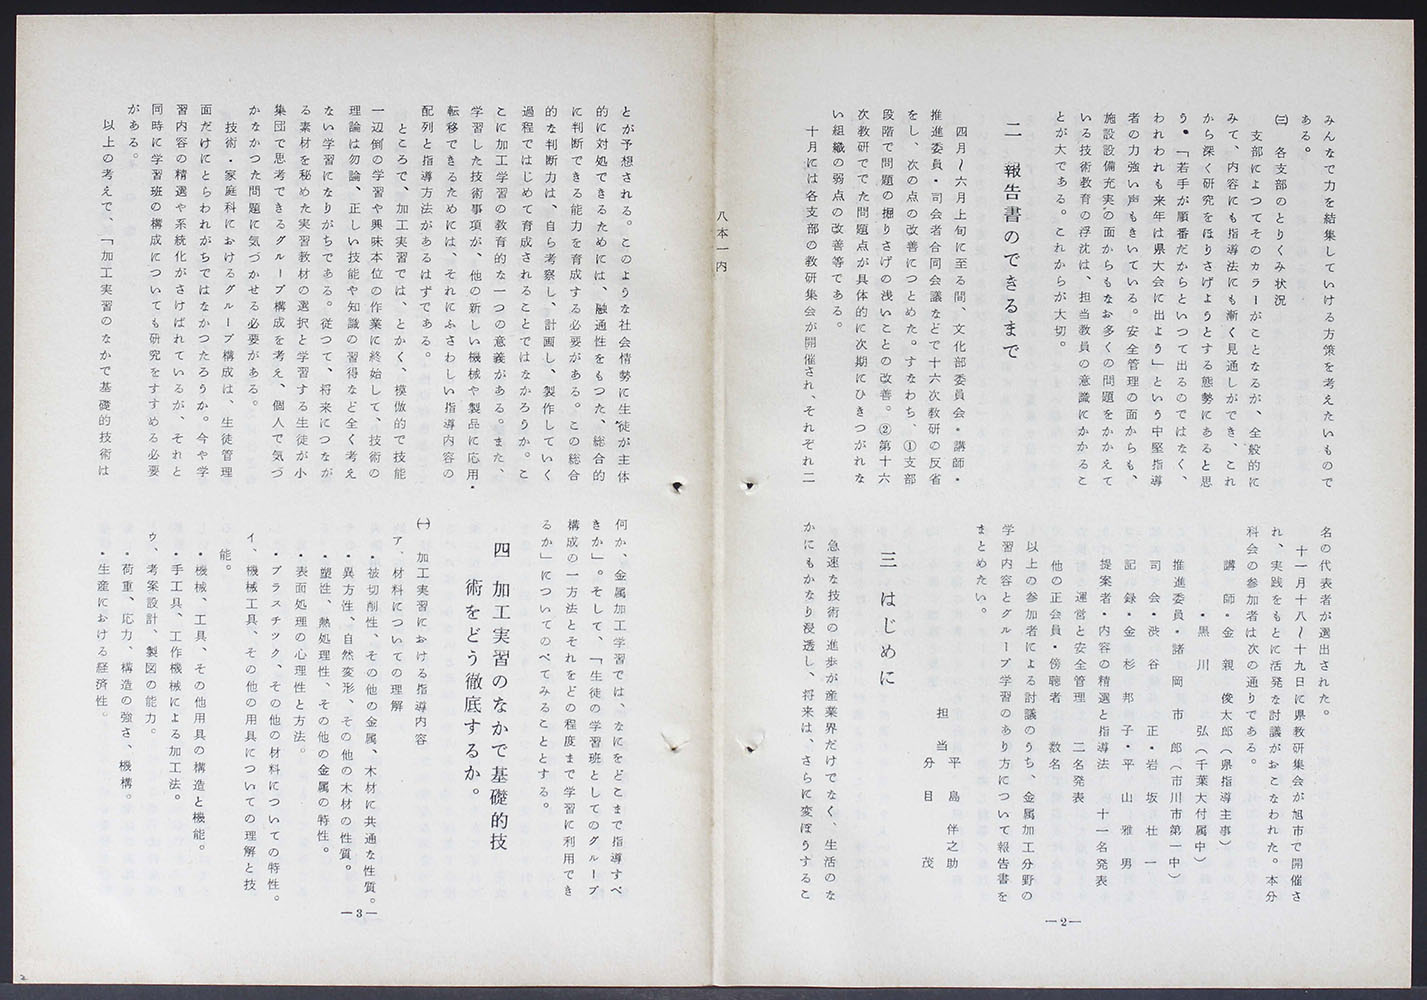 みんなで力を結集していける方策を考えたいもので
ある。
㈢　各支部のとりくみ状況
支部によつてそのカラーがことなるが、全般的に
みて、内容にも指導法にも漸く見通しができ、これ
から深く研究をほりさげようとする態勢にあると思
う。「若手が順番だからといつて出るのではなく、
われわれも来年は県大会に出よう」という中堅指導
者の力強い声もきいている。安全管理の面からも、
施設設備充実の面からもなお多くの問題をかかえて
いる技術教育の浮沈は、担当教員の意識にかかるこ
とが大である。これからが大切。
二　報告書のできるまで
四月～六月上旬に至る間、文化部委員会・講師・
推進委員・司会者合同会議などで十六次教研の反省
をし、次の点の改善につとめた。すなわち、①支部
段階で問題の掘りさげの浅いことの改善。②第十六
次教研ででた問題点が具体的に次期にひきつがれな
い組織の弱点の改善等である。
十月には各支部の教研集会が開催され、それぞれ二
名の代表者が選出された。
十一月十八～十九日に県教研集会が旭市で開催さ
れ、実践をもとに活発な討議がおこなわれた。本分
科会の参加者は次の通りである。
講　師・金　親　俊太郎（県指導主事）
・黒　川　弘（千葉大付属中）
推進委員・諸岡市郎（市川市第一中）
司　会・渋　谷　正・岩　坂　壮　一
記　録・金　杉　邦　子・平　山　雅　男
提案者・内容の精選と指導法　十一名発表
運営と安全管理　二名発表
他の正会員・傍聴者　数名
以上の参加者による討議のうち、金属加工分野の
学習内容とグループ学習のあり方について報告書を
まとめたい。
担　当　平　島　伴之助
分　目　茂
三　はじめに
急速な技術の進歩が産業界だけでなく、生活のな
かにもかなり浸透し、将来は、さらに変ぼうするこ
—2—
八本一内
とが予想される。このような社会情勢に生徒が主体
的に対処できるためには、融通性をもつた、総合的
に判断できる能力を育成する必要がある。この総合
的な判断力は、自ら考察し、計画し、製作していく
過程ではじめて育成されることではなかろうか。こ
こに加工学習の教育的な一つの意義がある。また、
学習した技術事項が、他の新しい機械や製品に応用・
転移できるためには、それにふさわしい指導内容の
配列と指導方法があるはずである。
ところで、加工実習では、とかく、模倣的で技能
一辺倒の学習や興味本位の作業に終始して、技術の
理論は勿論、正しい技能や知識の習得など全く考え
ない学習になりがちである。従つて、将来につなが
る素材を秘めた実習教材の選択と学習する生徒が小
集団で思考できるグループ構成を考え、個人で気づ
かなかつた問題に気づかせる必要がある。
技術・家庭科におけるグループ構成は、生徒管理
面だけにとらわれがちではなかつたろうか。今や学
習内容の精選や系統化がさけばれているが、それと
同時に学習班の構成についても研究をすすめる必要
がある。
以上の考えで、「加工実習のなかで基礎的技術は
何か、金属加工学習では、なにをどこまで指導すべ
きか」。そして、「生徒の学習班としてのグループ
構成の一方法とそれをどの程度まで学習に利用でき
るか」についてのべてみることとする。
四　加工実習のなかで基礎的技
術をどう徹底するか。
㈠　加工実習における指導内容
ア、材料についての理解
・被切削性、その他の金属、木材に共通な性質。
・異方性、自然変形、その他の木材の性質。
・塑性、熱処理性、その他の金属の特性。
・表面処理の心理性と方法。
・プラスチツク、その他の材料についての特性。
イ、機械工具、その他の用具についての理解と技
能。
・機械、工具、その他用具の構造と機能。
・手工具、工作機械による加工法。
ウ、考案設計、製図の能力。
・荷重、応力、構造の強さ、機構。
・生産における経済性。
—3—